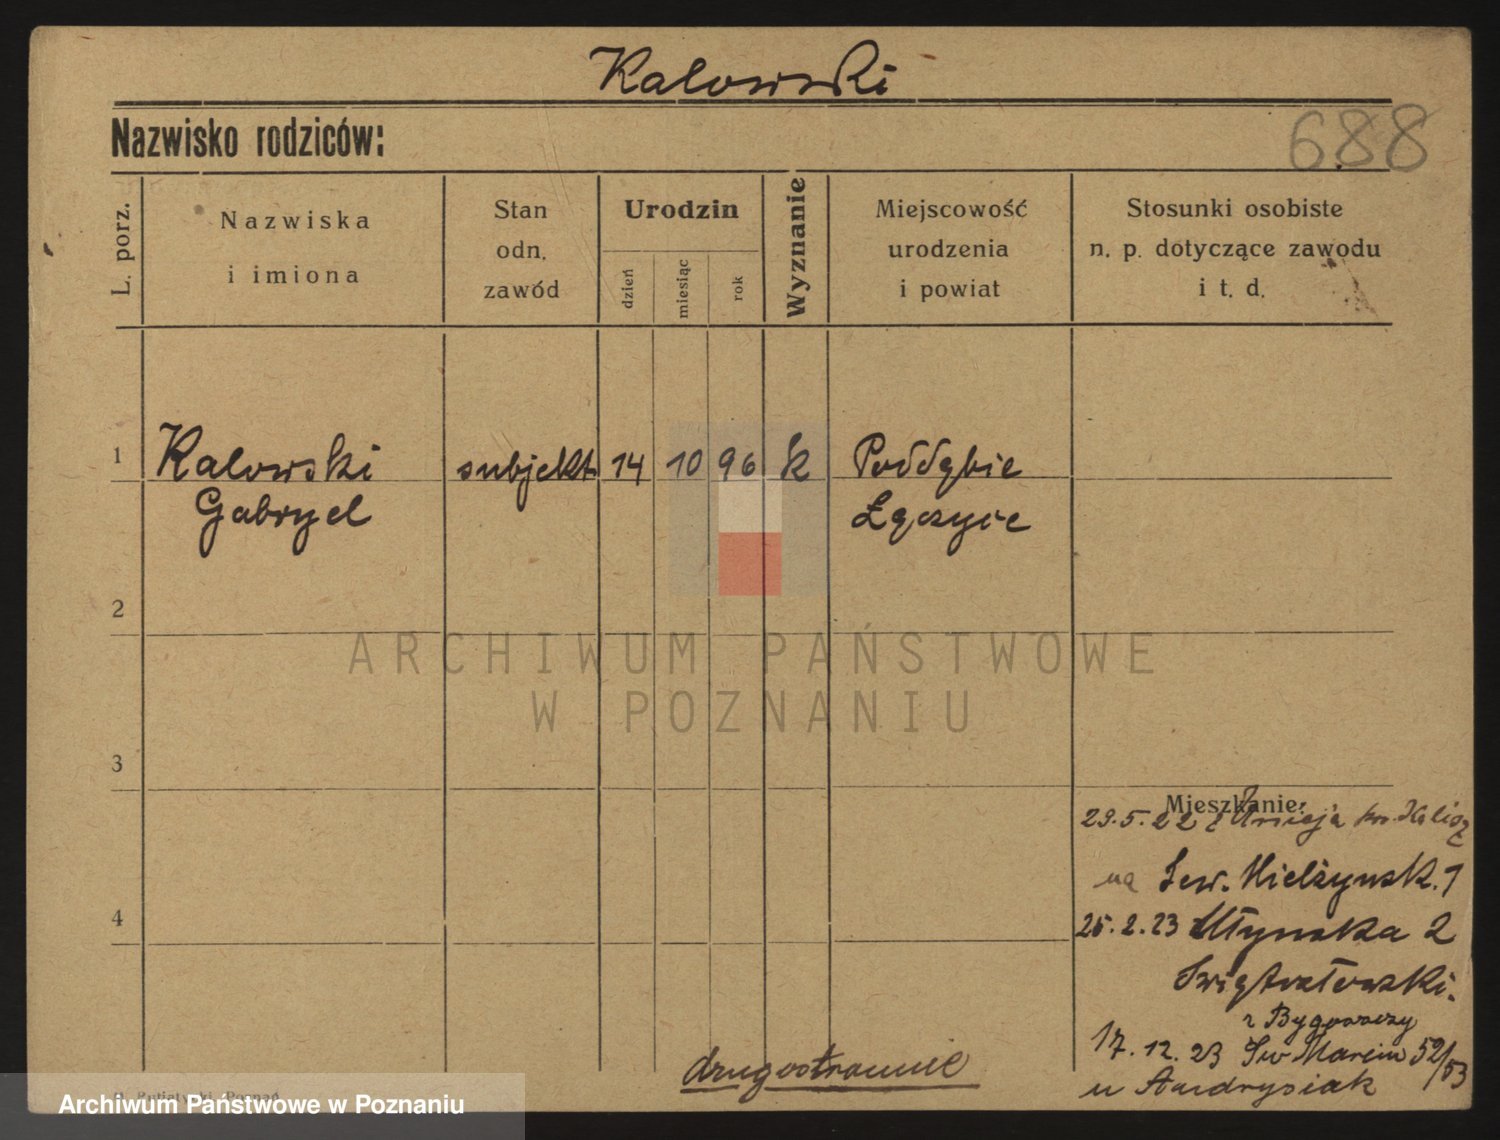 Kalowski
Nazwisko rodziców:
688
L. porz.
Nazwiska
i imiona
Stan
odn.
zawód
Urodzin
dzień
miesiąc
rok
Wyznanie
Miejscowość
urodzenia
i powiat
Stosunki osobiste
n. p. dotyczące zawodu
i t. d.
1 Kalowski subjekt 14 10 96 k Poddębie
Gabryel Łęczyce
2
ARCHIWUM PAŃSTWOWE
W POZNANIU
3
Mieszkanie:
29.5.22 z
4
Sew. Mielżynsk. 1
25.2.23 Młynska 2
Swiętosławski.
z Bygoszczy
17.12.23 Sw Marcin 52/53
u Andrysiak
drugostronnie
Putiatycki, Poznań
Archiwum Państwowe w Poznaniu